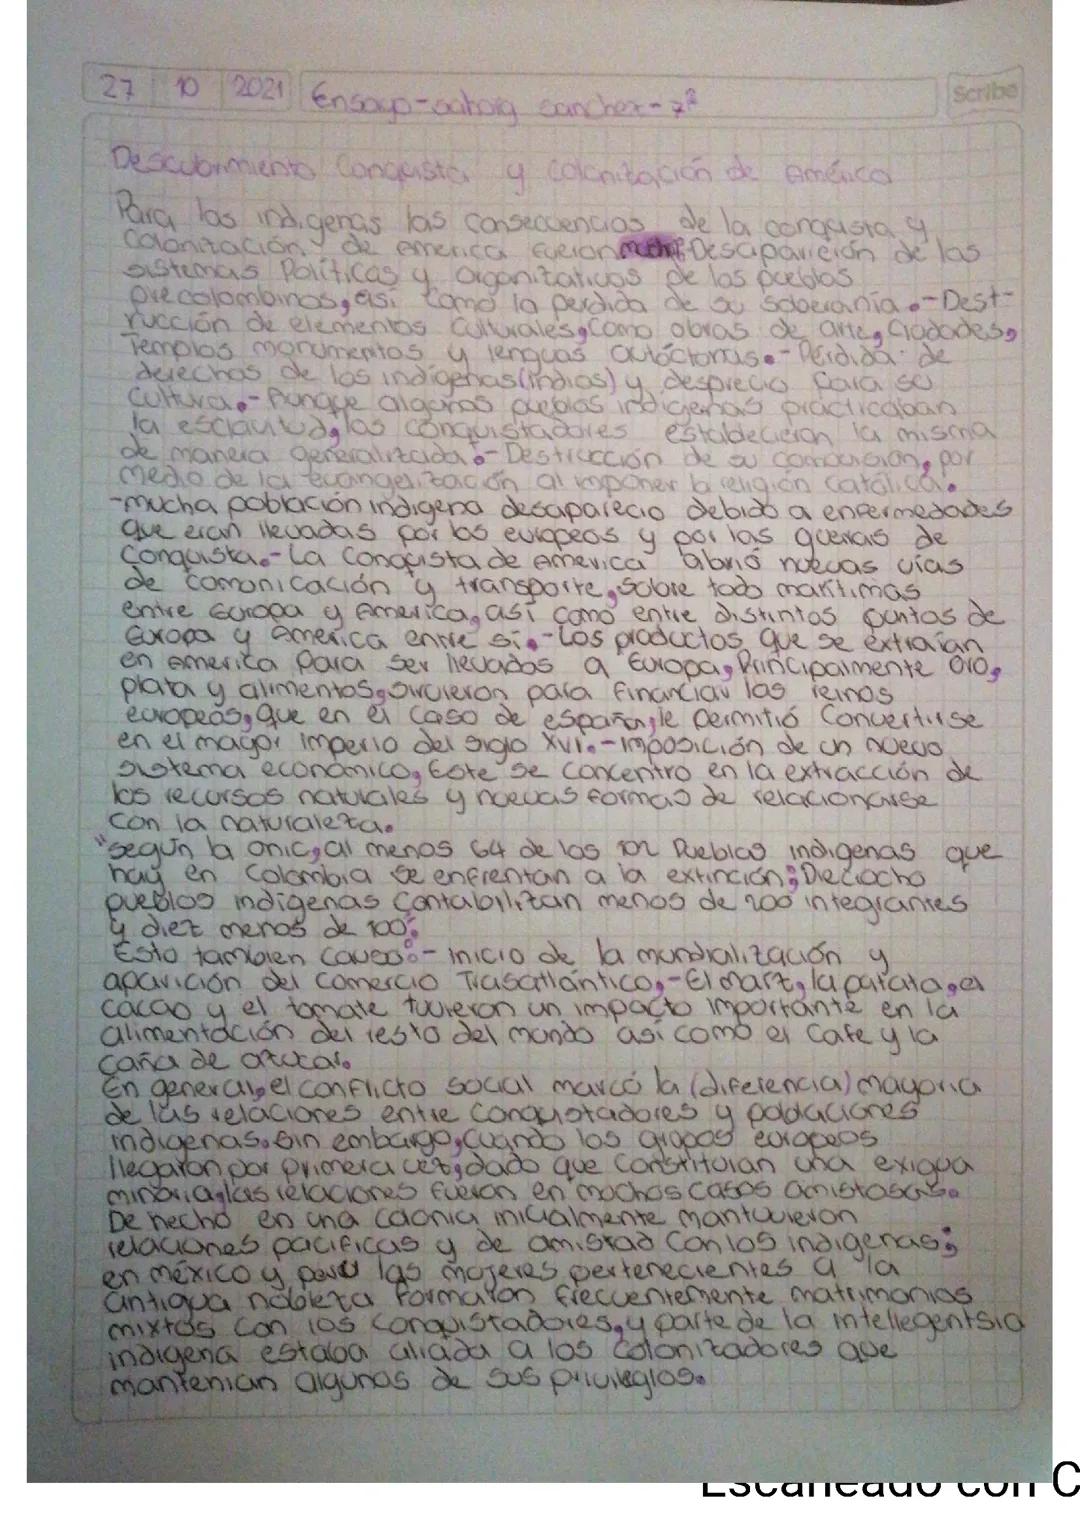 27 10 2021 Ensayo - sanchez - 7ª
Scribe
Descubrimiento Conquista y colonización de América
Para los indigenas las consecuencias de la conquista y
colonización de america fueron Desaparición de los
sistemas Políticas y organizativos de los pueblos
precolombinos, así como la perdida de su soberanía.-Dest-
rucción de elementos culturales, como obras de arte, Ciudades,
Templos monumentos y lenguas autóctonas.-Pérdida de
derechos de los indígenas (indios) y desprecio para su
cultura.-Aunque algunos pueblos indigenas practicaban
la esclavitud, los conquistadores establecieron la misma
de manera generalizada.-Destrucción de su por
medio de la Evangelización al imponer la religión católica.
-mucha población indigena desaparecio debido a enfermedades
que eran llevadas por los europeos y por las guerras de
conquista.-La conquista de America abrió nuevas vías
de comonicación y transporte, sobre todo marítimas
entre Europa y America, así como entre distintos puntos de
Europa y America entre sí.-Los productos que se extraían
en America para ser llevados a Europa, Principalmente oro,
plata y alimentos, sirvieron para financiar los reinos
europeos, que en el caso de españa, le permitió convertirse
en el mayor imperio del siglo XVI.-imposición de un nuevo
sistema económico, Este se concentro en la extracción de
los recursos naturales y nuevas formas de relacionarse
con la naturaleza.
"según la onic, al menos 64 de los 102 Pueblos indigenas que
hay en Colombia se enfrentan a la extinción; Dieciocho
pueblos indígenas contabilizan menos de 200 integrantes
y diez menos de 100".
Esto tambien causo:- inicio de la mundialización y
aparición del comercio Trasatlántico,-El maíz, la patata, el
cacao y el tomate tuvieron un impacto importante en la
alimentación del resto del mundo así como el cafe y la
caña de azucar.
En general, el conflicto social marcó la (diferencia) mayoria
de las relaciones entre conquistadores y poblaciones
indigenas. Sin embargo, cuando los grupos europeos
llegaron por primera vez, dado que constituian una exigua
minoria, las relaciones fueron en muchos casos amistosas.
De hecho en una colonia inicialmente mantuvieron
relaciones pacificas y de amistad con los indigenas;
en méxico y perú las mujeres pertenecientes a la
antigua nobleza formaron frecuentemente matrimonios
mixtos con los conquistadores, y parte de la intellegentsia
indigena estaba aliada a los colonizadores que
mantenian algunos de sus privilegios.
Escaneado con C